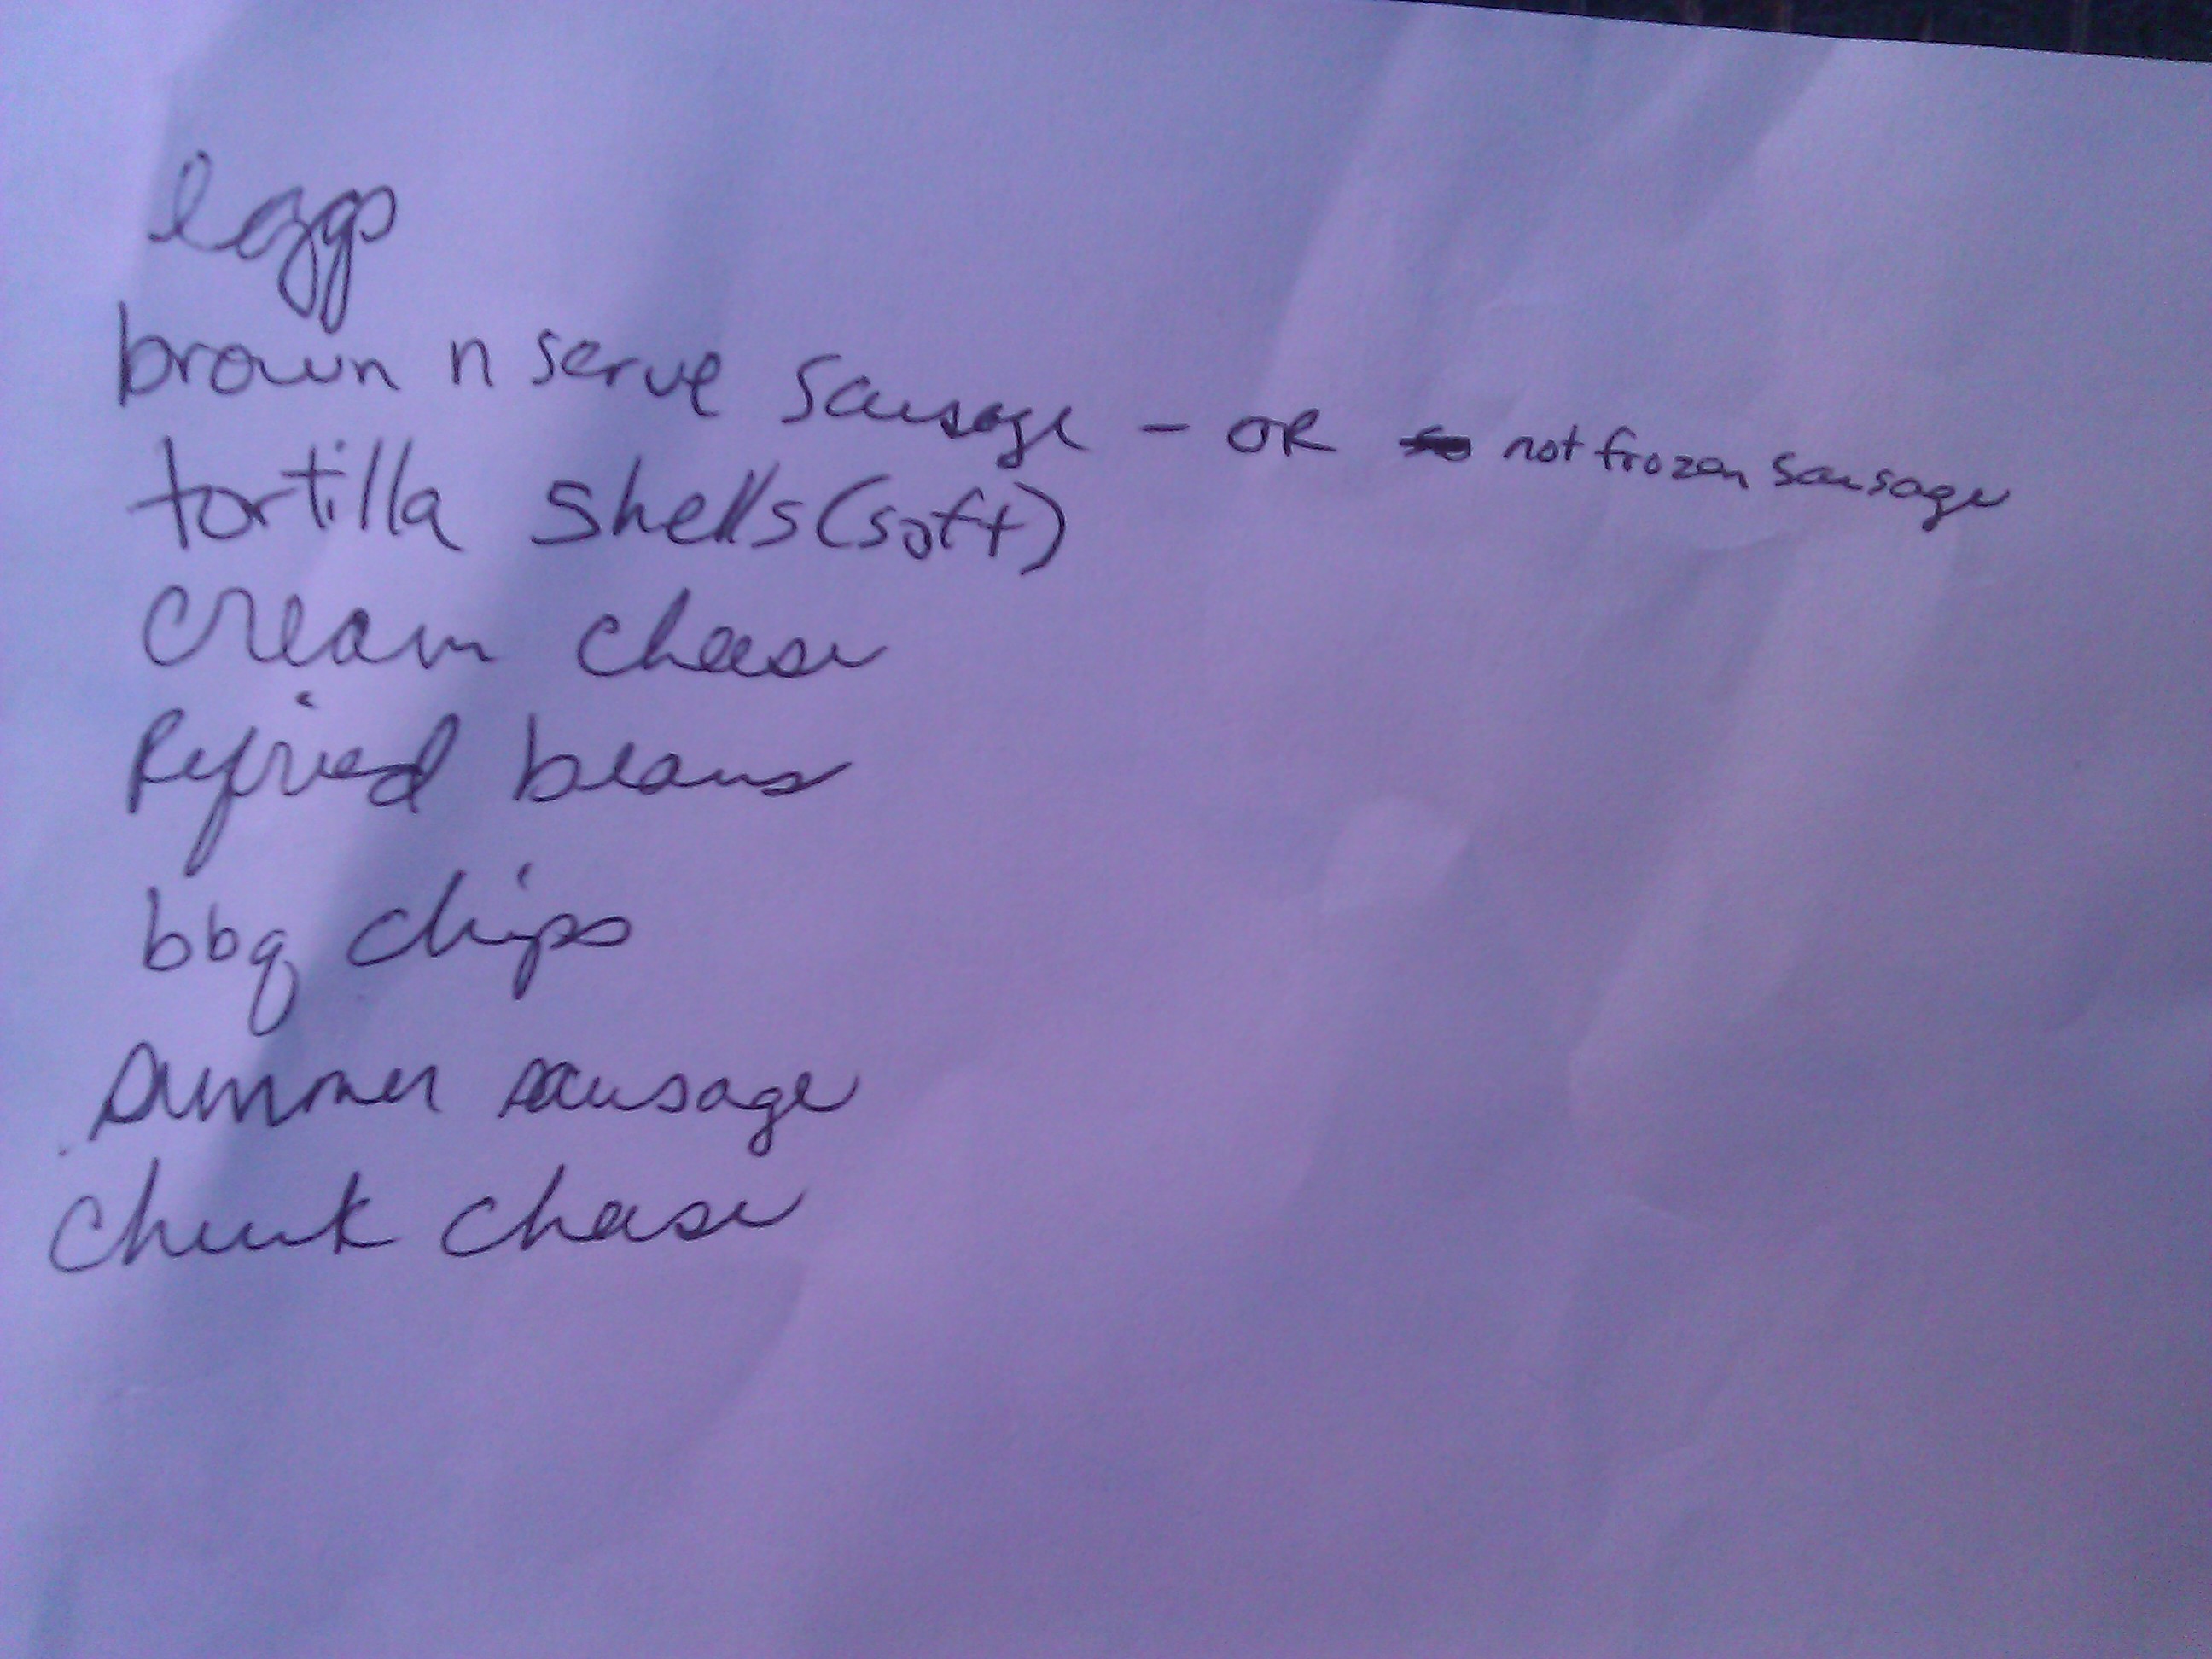 eggs
brown n serve sausage - OR not frozen sausage
tortilla shells (soft)
cream cheese
Refried beans
bbq chips
summer sausage
chunk cheese